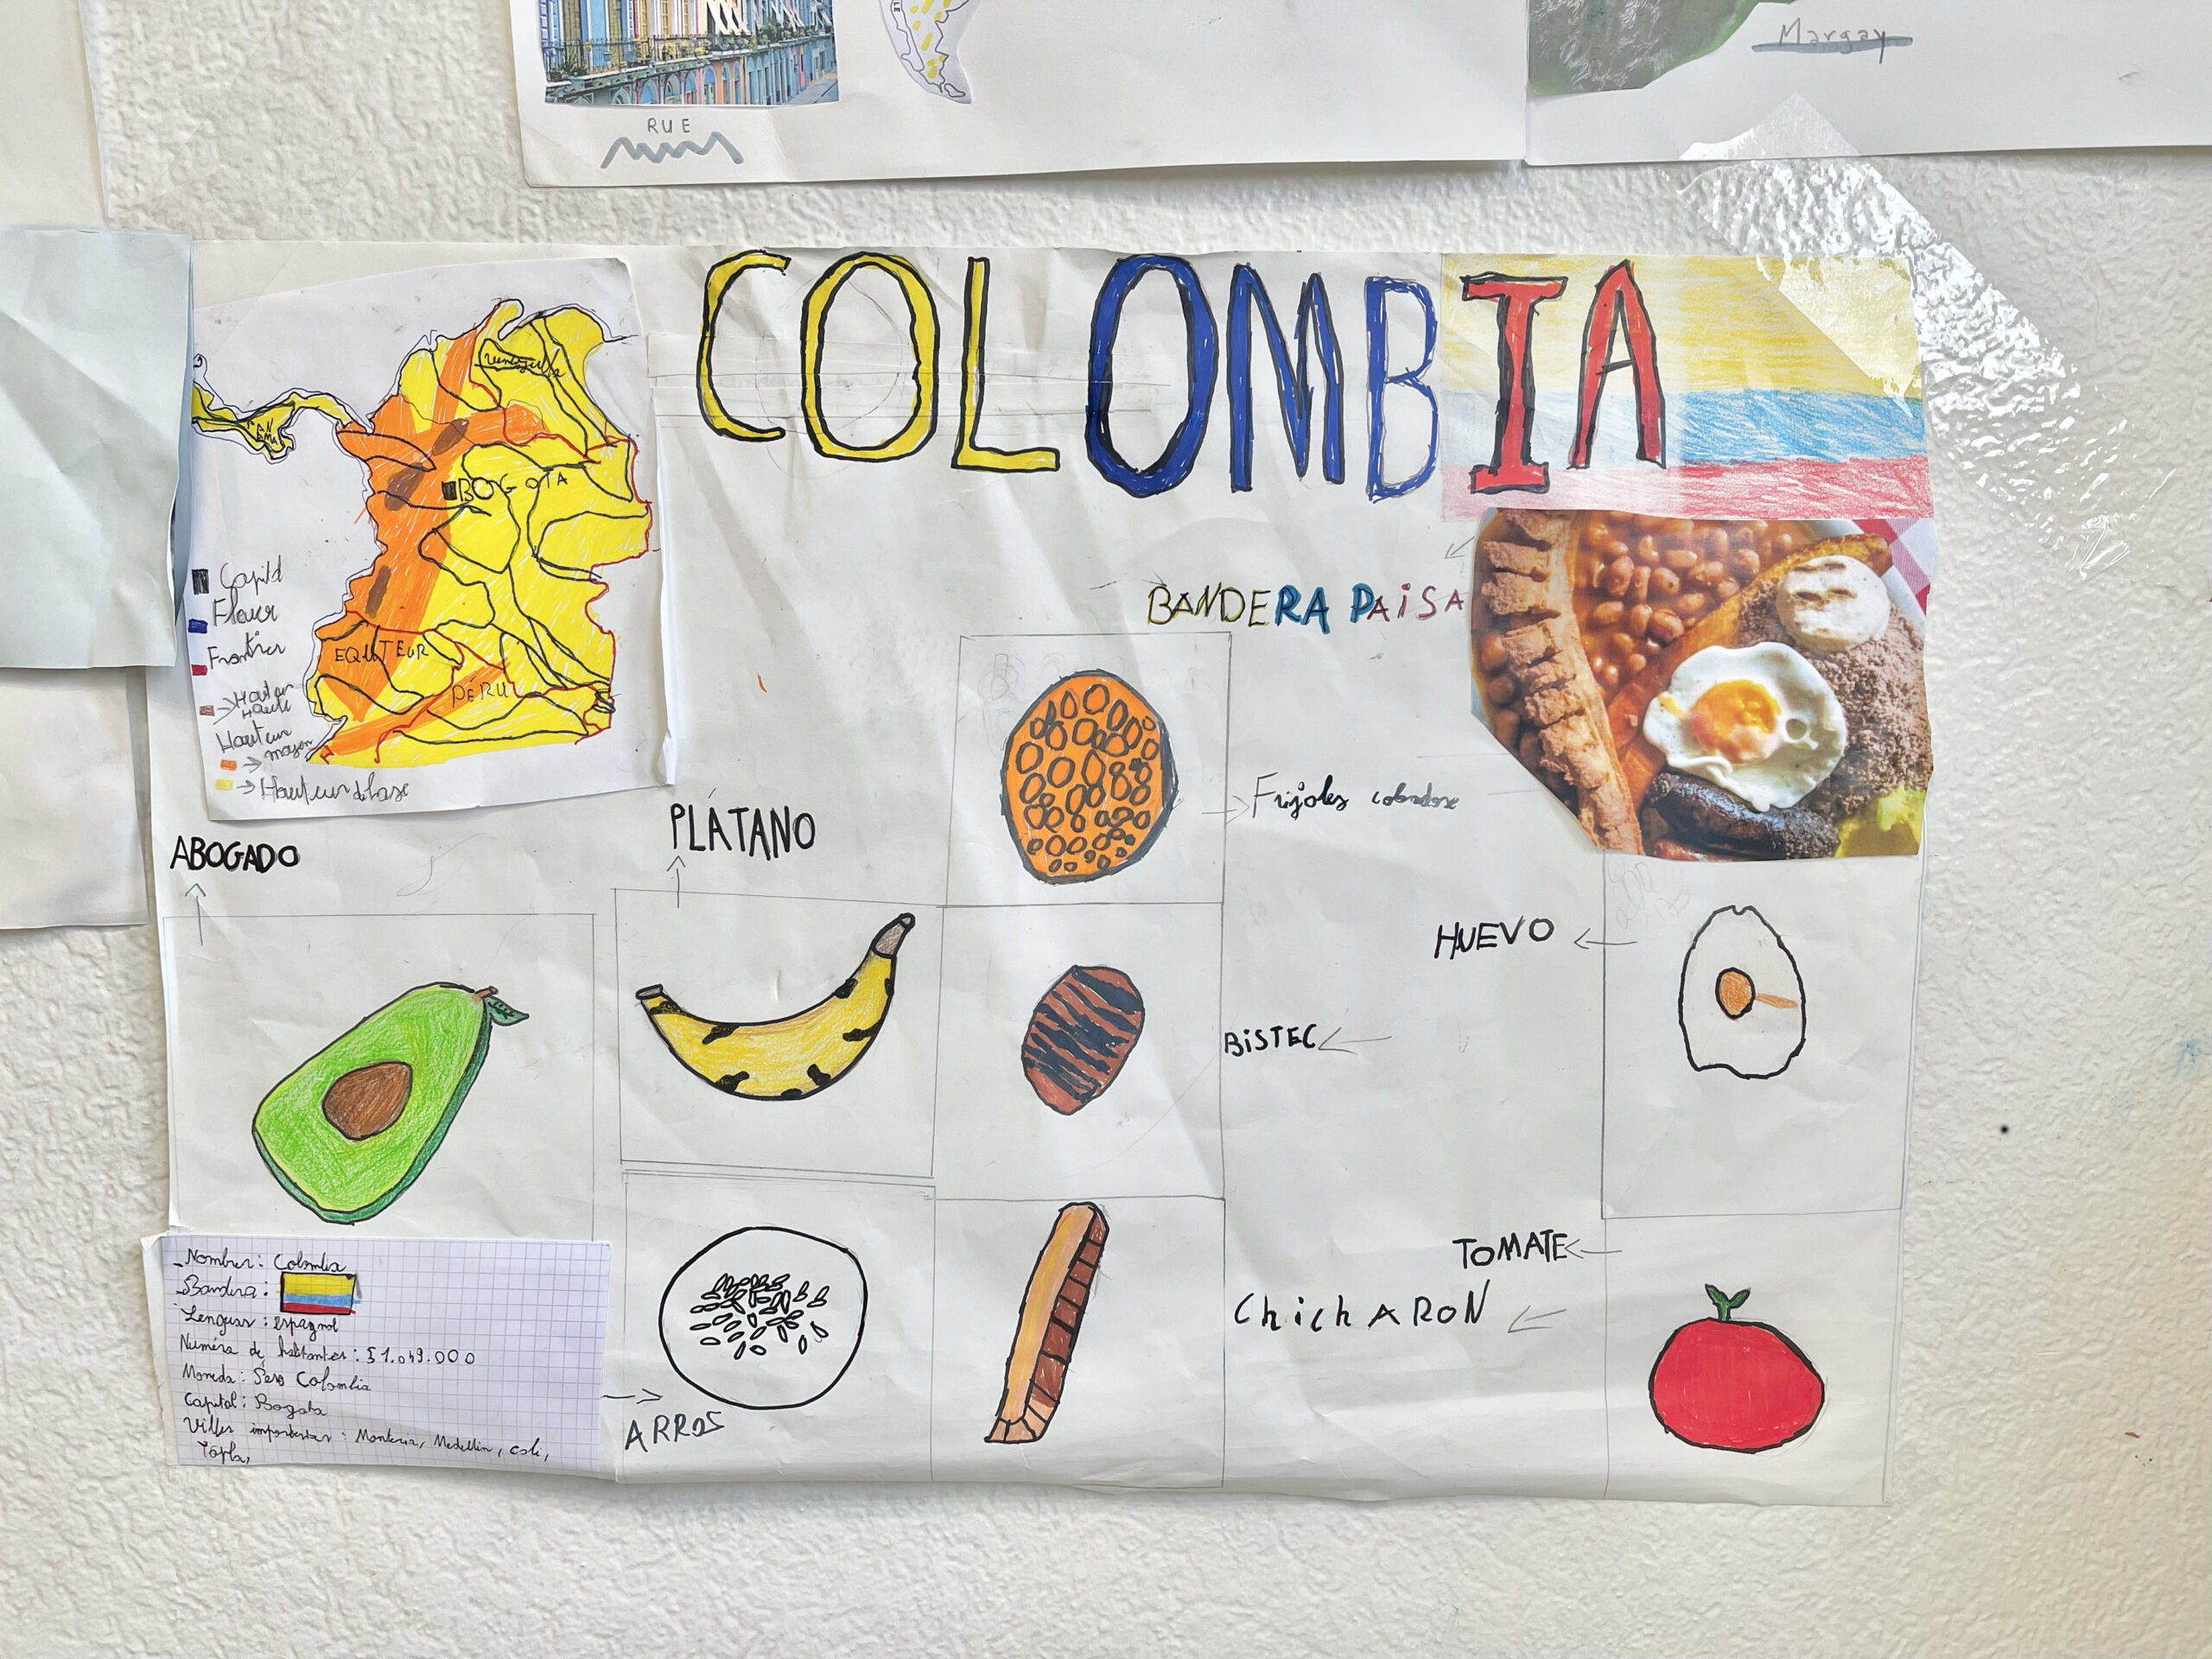 RUE
Margay
COLOMBIA
Venezuela
BOGOTA
EQUATEUR
PÉRU
Capital
Fleuve
Frontier
Hauteur
Haute
Hauteur
moyen
Hauteur de base
BANDERA PAISA
Frijoles
PLÁTANO
ABOGADO
HUEVO
BISTEC
TOMATE
ChichARON
ARROS
Nombre: Colombia
Bandera:
Lenguas: espagnol
Numéro de habitantes: 51.049.000
Moneda: Peso Colombia
Capital: Bogota
Villes importantes: Monteria, Medellin, cali,